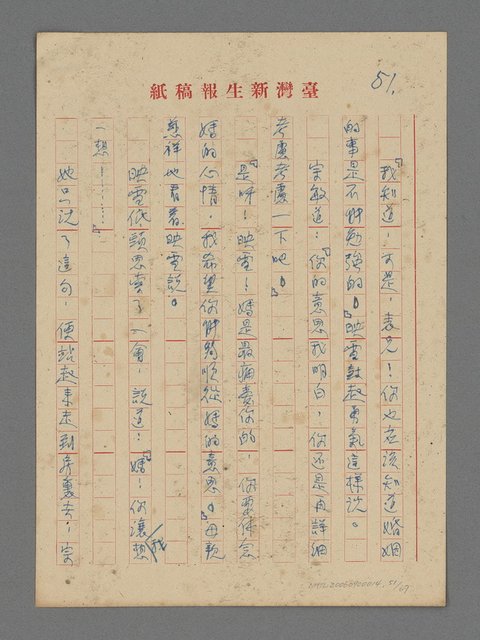 臺灣新生報稿紙
51.
「我知道，可是，表兄！你也应該知道婚姻
的事是不能勉強的。」映雪鼓起勇氣這樣說。
宗敏道：「你的意思我明白，你还是再詳細
考慮考慮一下吧！」
「是呀！映雪！媽是最痛愛你的，你要体念
媽的心情，我希望你能夠順從媽的意思。」母親
慈祥地看着映雪說。
映雪低頭思索了一會，說道：「媽！你讓我想
一想………」
她只說了這句，便站起來走到房裏去，宗
NMTL20060400014, 51/69